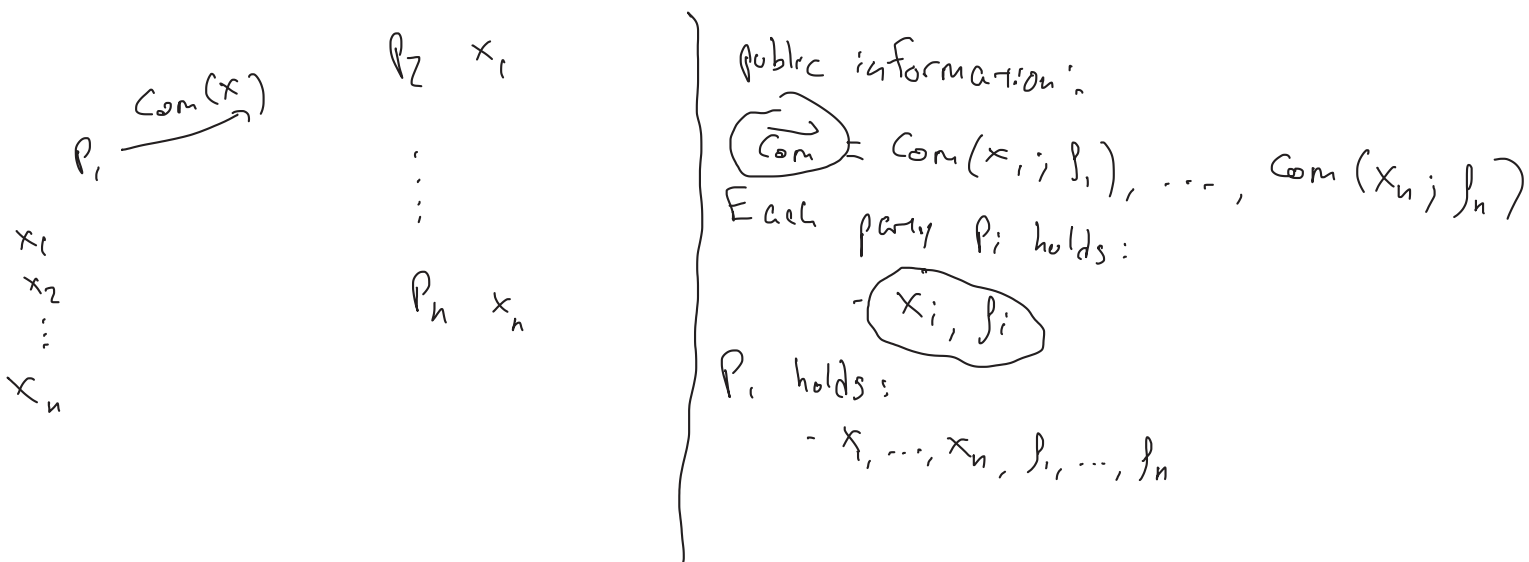 P₂ x₁
Com(x)
P₁
⋮
x₁
x₂
⋮
xₙ
Pₙ xₙ
public information:
Com⃗ = Com(x₁; ρ₁), ..., Com(xₙ; ρₙ)
Each party Pᵢ holds:
- xᵢ, ρᵢ
P₁ holds:
- x₁, ..., xₙ, ρ₁, ..., ρₙ